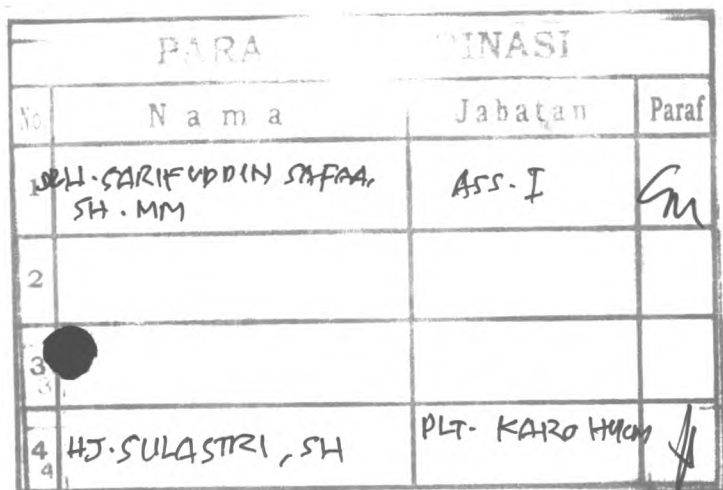 PARA INASI
No Nama Jabatan Paraf
1 H. SARIFUDDIN SAFAA, ASS. I
SH. MM
2
3
3
4 HJ. SULASTRI, SH PLT. KARO HUKM
4